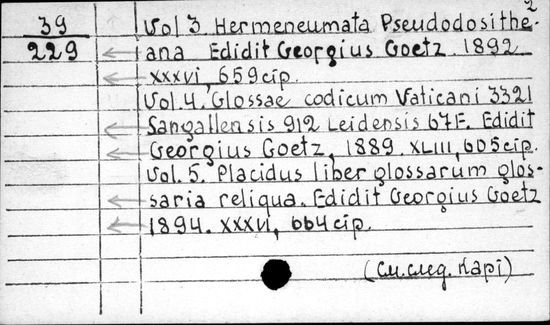 2
39
229
Vol 3. Hermeneumata Pseudodosithe-
ana Edidit Georgius Goetz. 1892
XXXVI, 659 cip.
Vol. 4. Glossae codicum Vaticani 3321
Sangallensis 912 Leidensis 67F. Edidit
Georgius Goetz, 1889. XLIII, 605 cip.
Vol. 5. Placidus liber glossarum glos-
saria reliqua. Edidit Georgius Goetz
1894. XXXVI, 664 cip.
(См. след. карі)